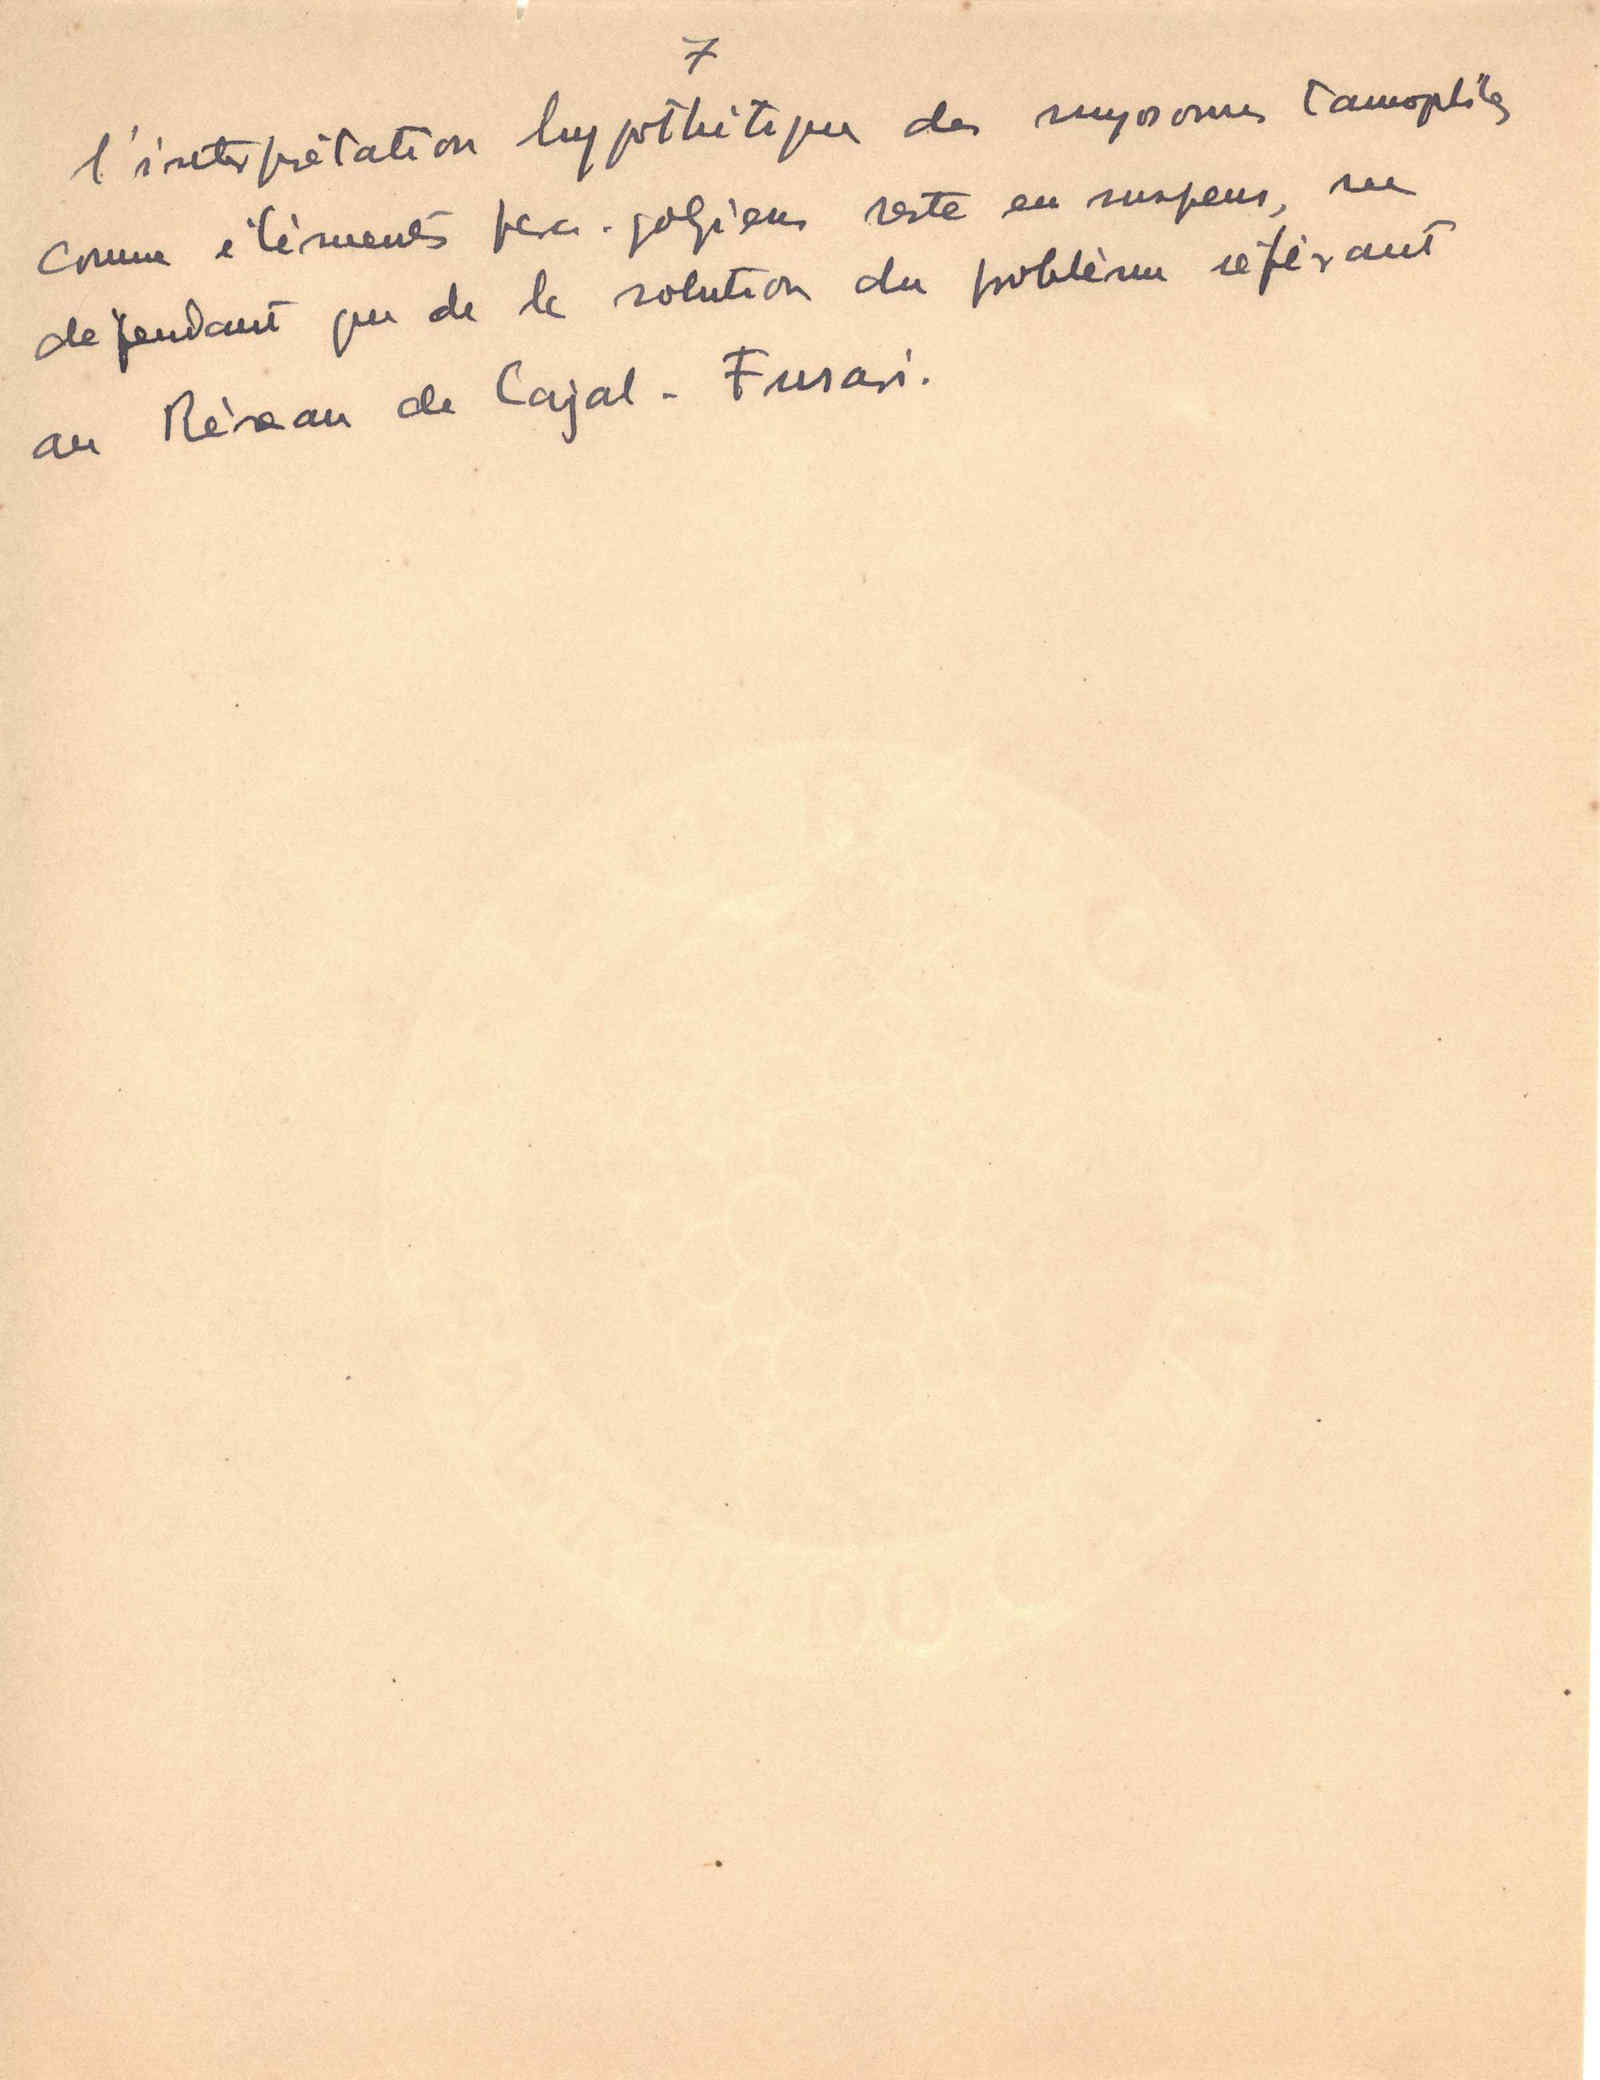 7
l'interprétation hypothétique des myosomes tannophiles
comme éléments para-golgiens reste en suspens, ne
dépendant que de la solution du problème référant
au Réseau de Cajal - Fusari.